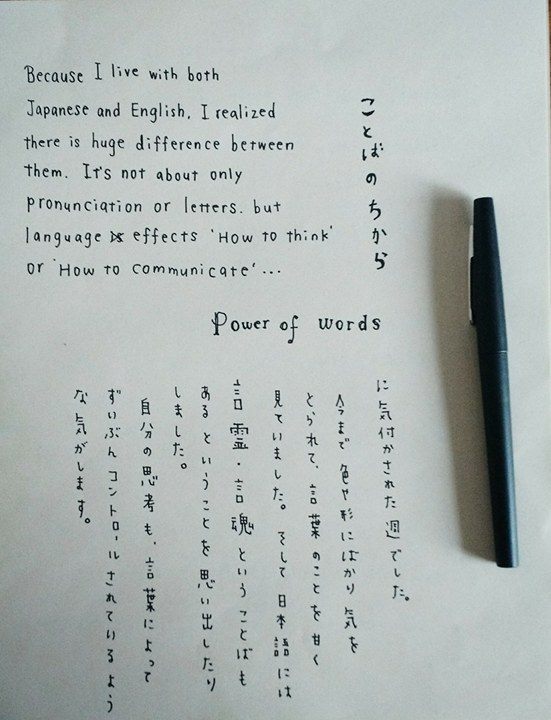 Because I live with both
Japanese and English, I realized
there is huge difference between
them. It's not about only
pronunciation or letters. but
language effects 'How to think'
or 'How to communicate'...
ことばのちから
Power of words
に気付かされた週でした。
今まで色や形にばかり気を
とられて、言葉のことを甘く
見ていました。そして日本語には
言霊・言魂ということばも
あるということを思い出したり
しました。
自分の思考も、言葉によって
ずいぶんコントロールされているよう
な気がします。